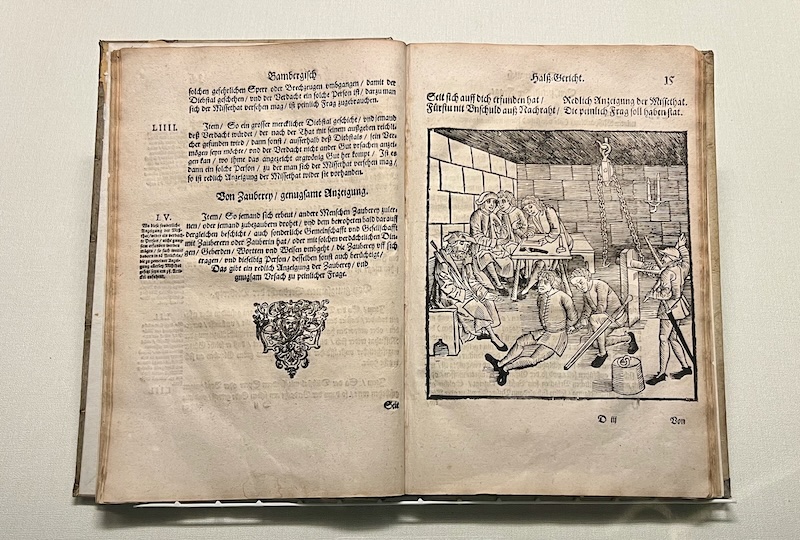 Bambergisch
solchen gefehrlichen Sperr oder Brechzeugen umbgangen / damit der
Diebstal geschehen / und der Verdacht ein solche Person ist / darzu man
sich der Missethat versehen mag / ist peinlich Frag zugebrauchen.
LIIII. Item / So ein grosser mercklicher Diebstal geschicht / und jemand
deß Verdacht würdet / der nach der That mit seinem außgeben reichli-
cher gefunden wird / dann sonst / ausserhalb deß Diebstals / sein Ver-
mögen seyn möchte / und der Verdacht nicht ander Gut ursachen anzei-
gen kan / wo ihme das angezeicht argwönig Gut her kompt / Ist es
dann ein solche Person / zu der man sich der Missethat versehen mag /
so ist redlich Anzeigung der Missethat wider sie vorhanden.
Von Zauberey / genugsame Anzeigung.
LV. Item / So jemand sich erbeut / andere Menschen Zauberey zuler-
nen / oder jemand zubezaubern drohet / und dem bedroheten bald darauff
dergleichen beschicht / auch sonderliche Gemeinschafft und Gesellschafft
mit Zauberern oder Zauberin hat / oder mit solchen verdächtlichen Din-
gen / Geberden / Worten und Weisen umbgeht / die Zauberey uff sich
tragen / und dieselbig Person / desselben sonst auch berüchtigt /
Das gibt ein redlich Anzeigung der Zauberey / und
genugsam Vrsach zu peinlicher Frage.
Seit
Halß-Gericht. 15
Seit sich auff dich erfunden hat / Redlich Anzeigung der Missethat.
Fürstu nit Vnschuld auß Nachraht / Die peinlich Frag soll haben stat.
D iij Von